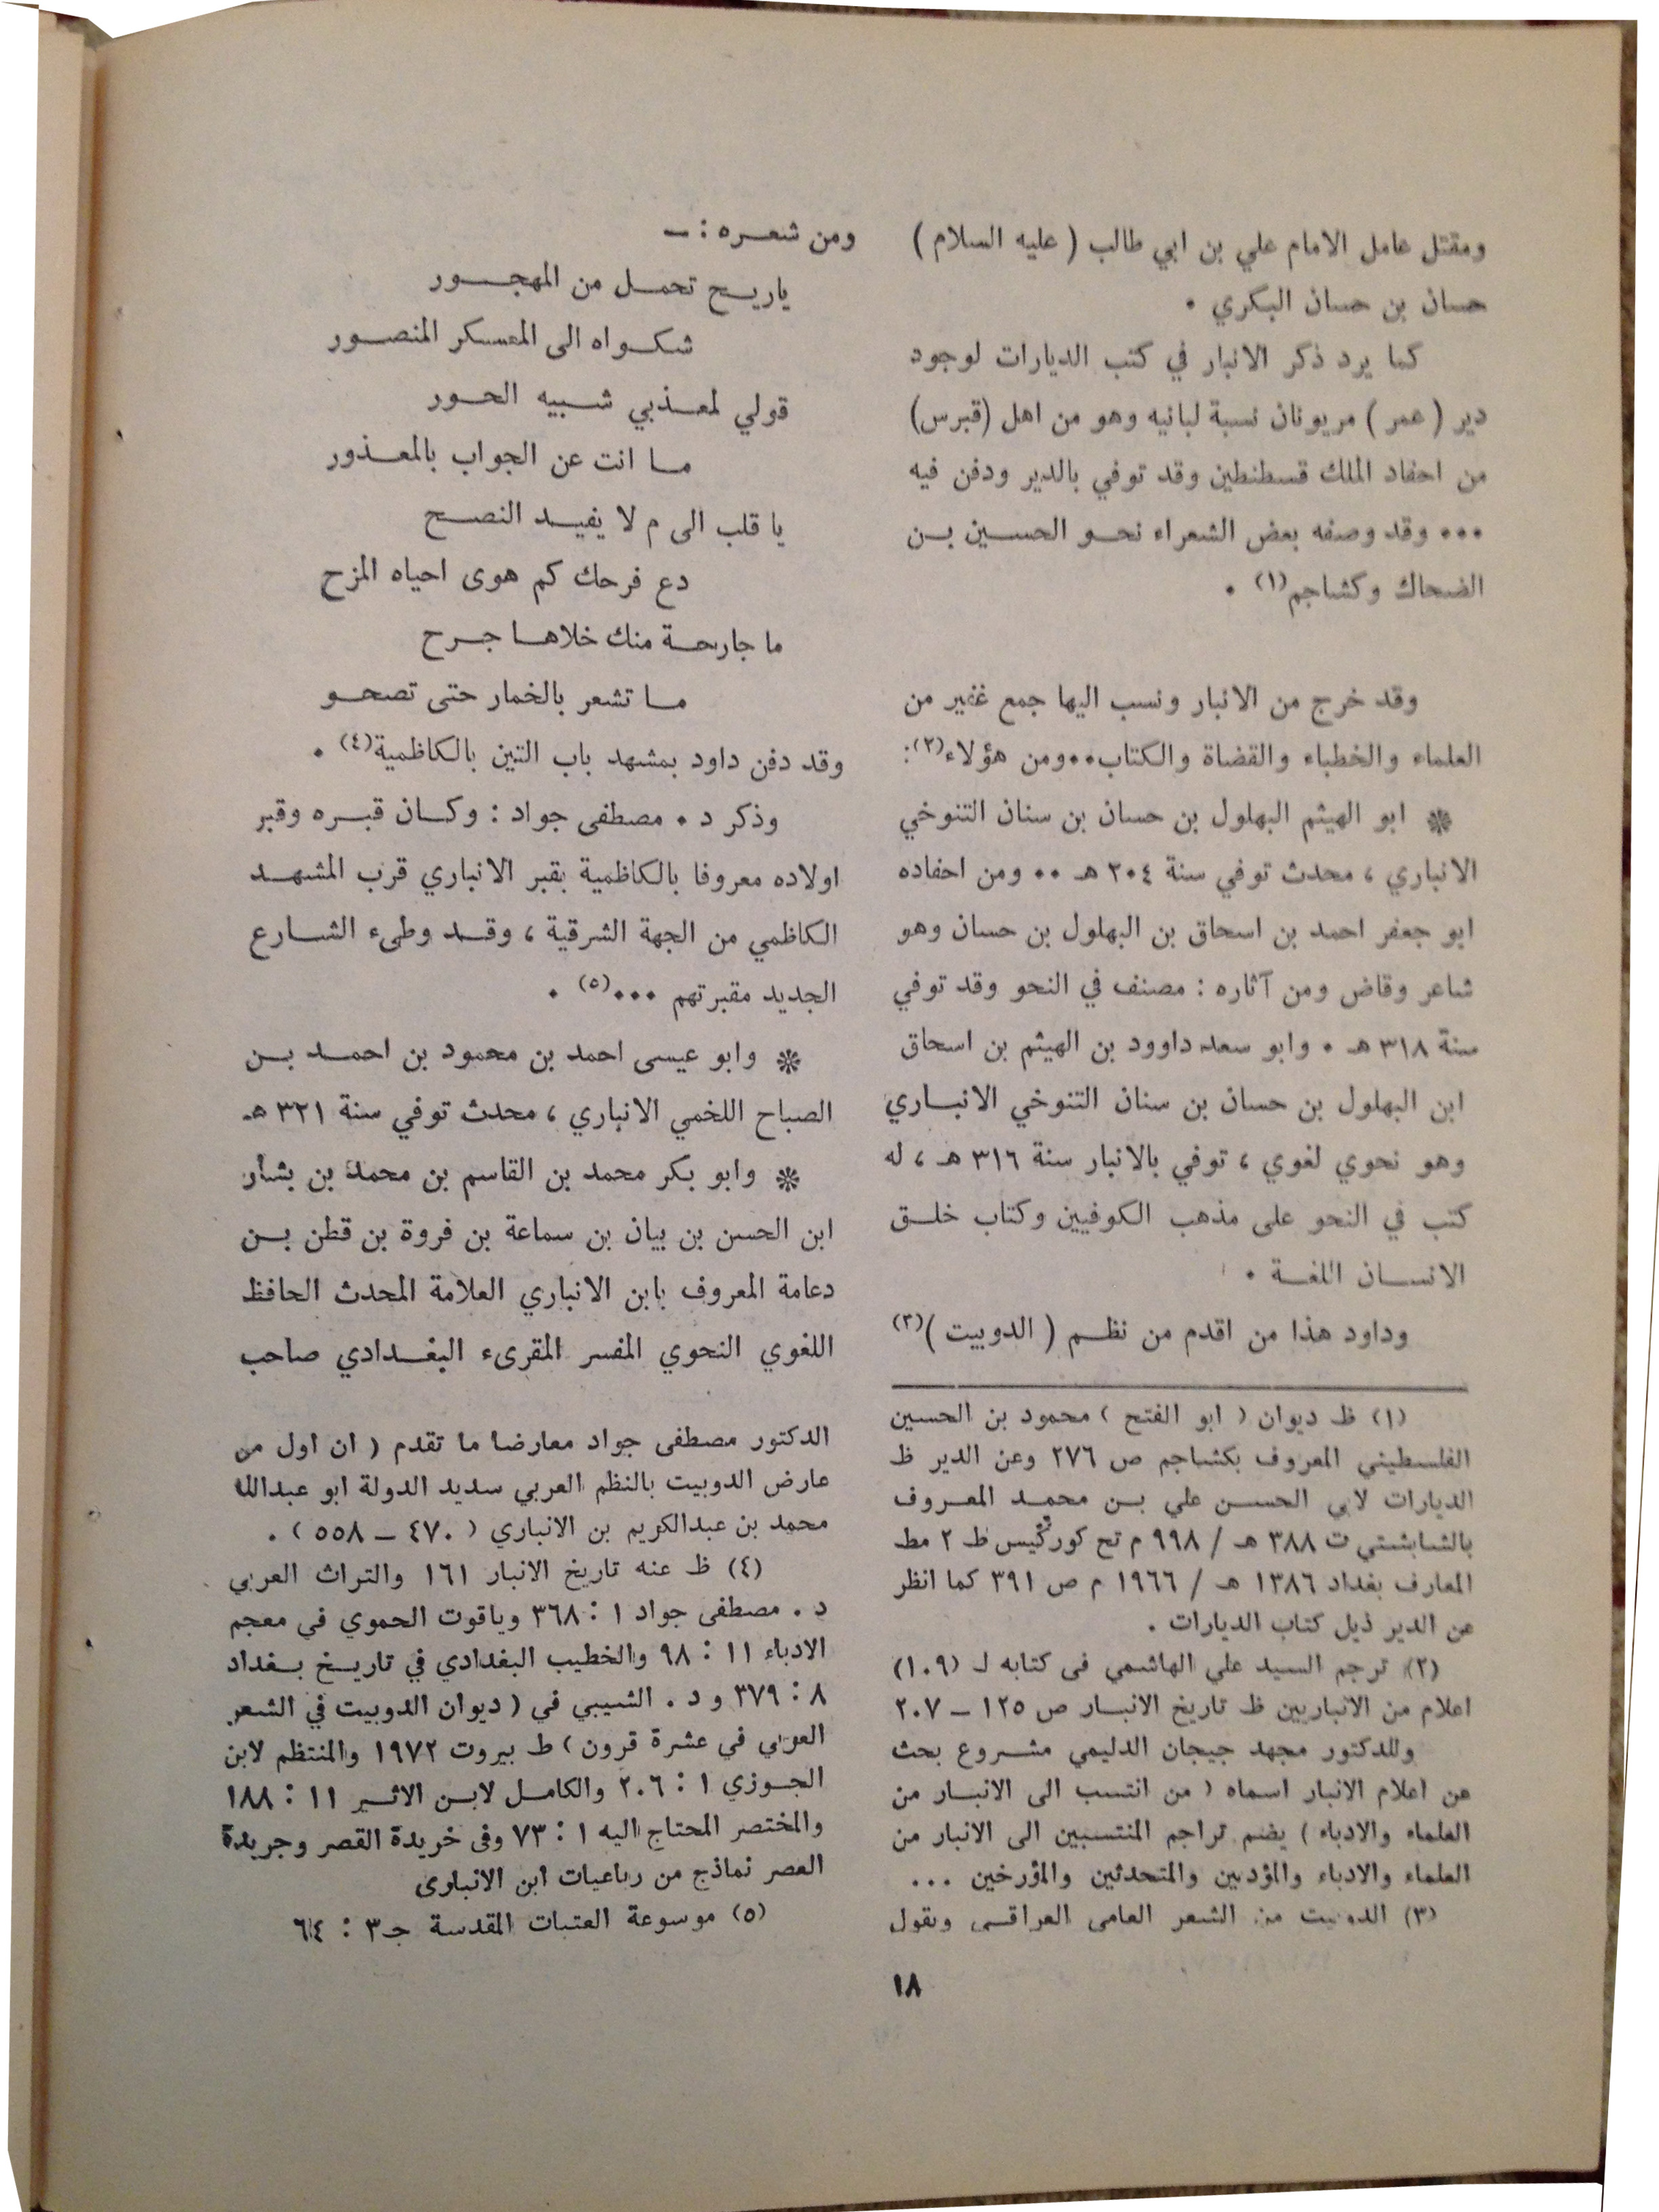 ومقتل عامل الامام علي بن ابي طالب ( عليه السلام )
حسان بن حسان البكري .
كما يرد ذكر الانبار في كتب الديارات لوجود
دير ( عمر ) مريونان نسبة لبانيه وهو من اهل (قبرس)
من احفاد الملك قسطنطين وقد توفي بالدير ودفن فيه
... وقد وصفه بعض الشعراء نحو الحسين بن
الضحاك وكشاجم(١) .
وقد خرج من الانبار ونسب اليها جمع غفير من
العلماء والخطباء والقضاة والكتاب..ومن هؤلاء(٢):
* ابو الهيثم البهلول بن حسان بن سنان التنوخي
الانباري ، محدث توفي سنة ٢٠٤ هـ .. ومن احفاده
ابو جعفر احمد بن اسحاق بن البهلول بن حسان وهو
شاعر وقاض ومن آثاره : مصنف في النحو وقد توفي
سنة ٣١٨ هـ . وابو سعد داوود بن الهيثم بن اسحاق
ابن البهلول بن حسان بن سنان التنوخي الانباري
وهو نحوي لغوي ، توفي بالانبار سنة ٣١٦ هـ ، له
كتب في النحو على مذهب الكوفيين وكتاب خلق
الانسان اللغة .
وداود هذا من اقدم من نظم ( الدوبيت )(٣)
(١) ظ ديوان ( ابو الفتح ) محمود بن الحسين
الفلسطيني المعروف بكشاجم ص ٢٧٦ وعن الدير ظ
الديارات لابي الحسن علي بن محمد المعروف
بالشابشتي ت ٣٨٨ هـ / ٩٩٨ م تح كوركيس ط ٢ مط
المعارف بغداد ١٣٨٦ هـ / ١٩٦٦ م ص ٣٩١ كما انظر
عن الدير ذيل كتاب الديارات .
(٢) ترجم السيد علي الهاشمي فى كتابه لـ (١٠٩)
اعلام من الانباريين ظ تاريخ الانبار ص ١٢٥ – ٢٠٧
وللدكتور مجهد جيجان الدليمي مشروع بحث
عن اعلام الانبار اسماه ( من انتسب الى الانبار من
العلماء والادباء ) يضم تراجم المنتسبين الى الانبار من
العلماء والادباء والمؤدبين والمتحدثين والمؤرخين ...
(٣) الدوبيت من الشعر العامى العراقى ويقول
ومن شعره : –
ياريح تحمل من المهجور
شكواه الى المعسكر المنصور
قولي لمعذبي شبيه الحور
ما انت عن الجواب بالمعذور
يا قلب الى م لا يفيد النصح
دع فرحك كم هوى احياه المزح
ما جارحة منك خلاها جرح
ما تشعر بالخمار حتى تصحو
وقد دفن داود بمشهد باب التين بالكاظمية(٤) .
وذكر د . مصطفى جواد : وكان قبره وقبر
اولاده معروفا بالكاظمية بقبر الانباري قرب المشهد
الكاظمي من الجهة الشرقية ، وقد وطىء الشارع
الجديد مقبرتهم ...(٥) .
* وابو عيسى احمد بن محمود بن احمد بن
الصباح اللخمي الانباري ، محدث توفي سنة ٣٢١ هـ
* وابو بكر محمد بن القاسم بن محمد بن بشار
ابن الحسن بن بيان بن سماعة بن فروة بن قطن بن
دعامة المعروف بابن الانباري العلامة المحدث الحافظ
اللغوي النحوي المفسر المقرىء البغدادي صاحب
الدكتور مصطفى جواد معارضا ما تقدم ( ان اول من
عارض الدوبيت بالنظم العربي سديد الدولة ابو عبدالله
محمد بن عبدالكريم بن الانباري ( ٤٧٠ – ٥٥٨ ) .
(٤) ظ عنه تاريخ الانبار ١٦١ والتراث العربي
د . مصطفى جواد ١ : ٣٦٨ وياقوت الحموي في معجم
الادباء ١١ : ٩٨ والخطيب البغدادي في تاريخ بغداد
٨ : ٣٧٩ و د . الشيبي في ( ديوان الدوبيت في الشعر
العربي في عشرة قرون ) ط بيروت ١٩٧٢ والمنتظم لابن
الجوزي ١ : ٢٠٦ والكامل لابن الاثير ١١ : ١٨٨
والمختصر المحتاج اليه ١ : ٧٣ وفى خريدة القصر وجريدة
العصر نماذج من رباعيات ابن الانبارى
(٥) موسوعة العتبات المقدسة جـ٣ : ٦٤
١٨